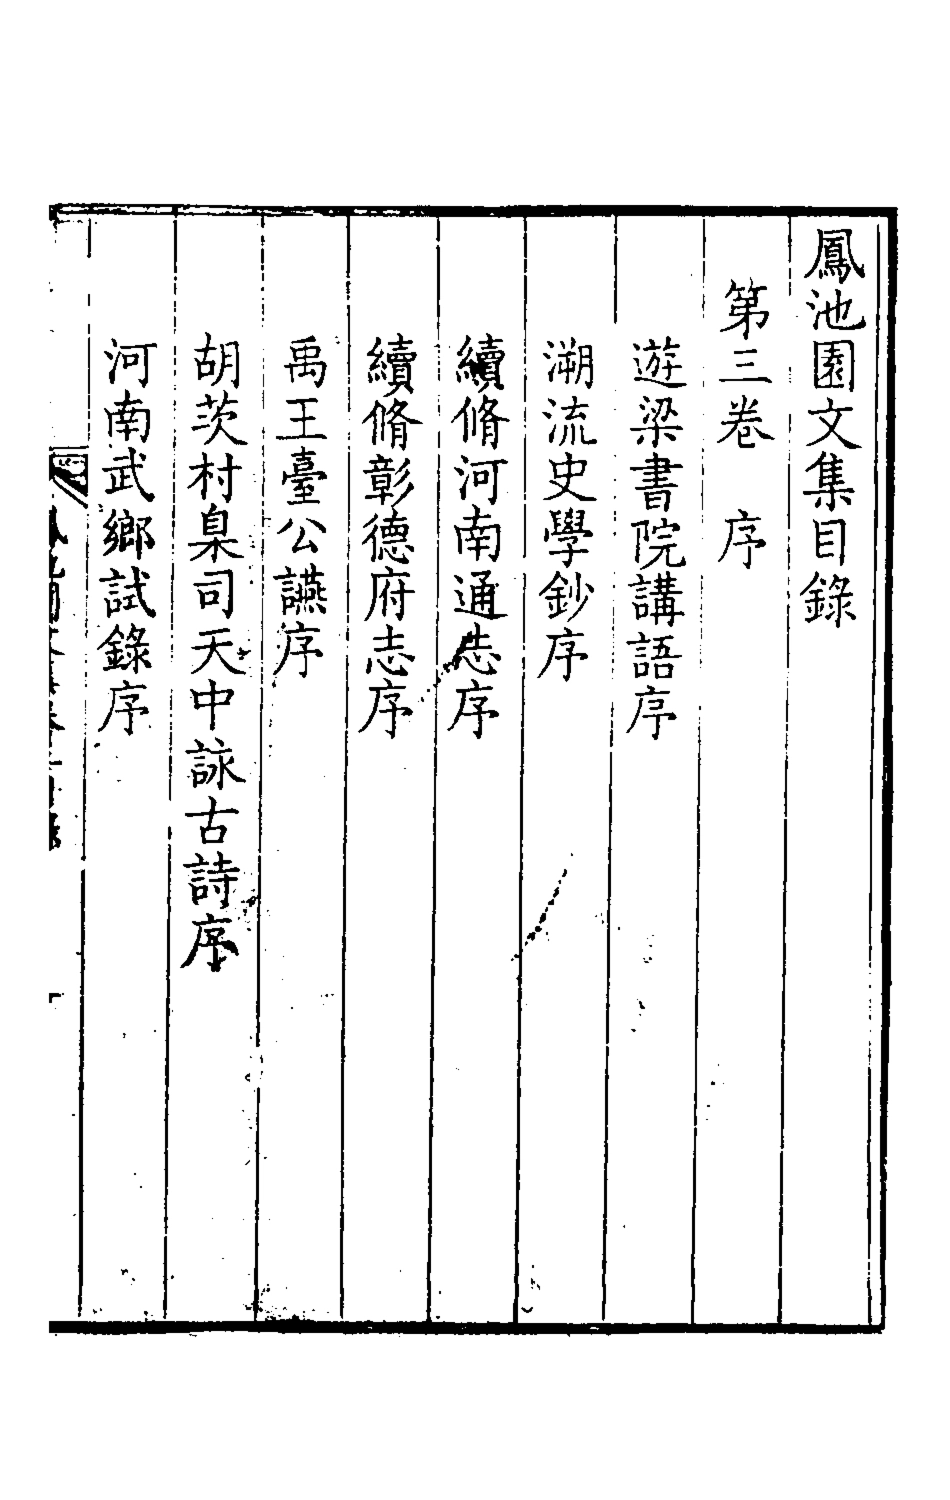 鳳池園文集目錄
第三卷　序
遊梁書院講語序
溯流史學鈔序
續脩河南通志序
續脩彰德府志序
禹王臺公讌序
胡茨村臬司天中詠古詩序
河南武鄉試錄序